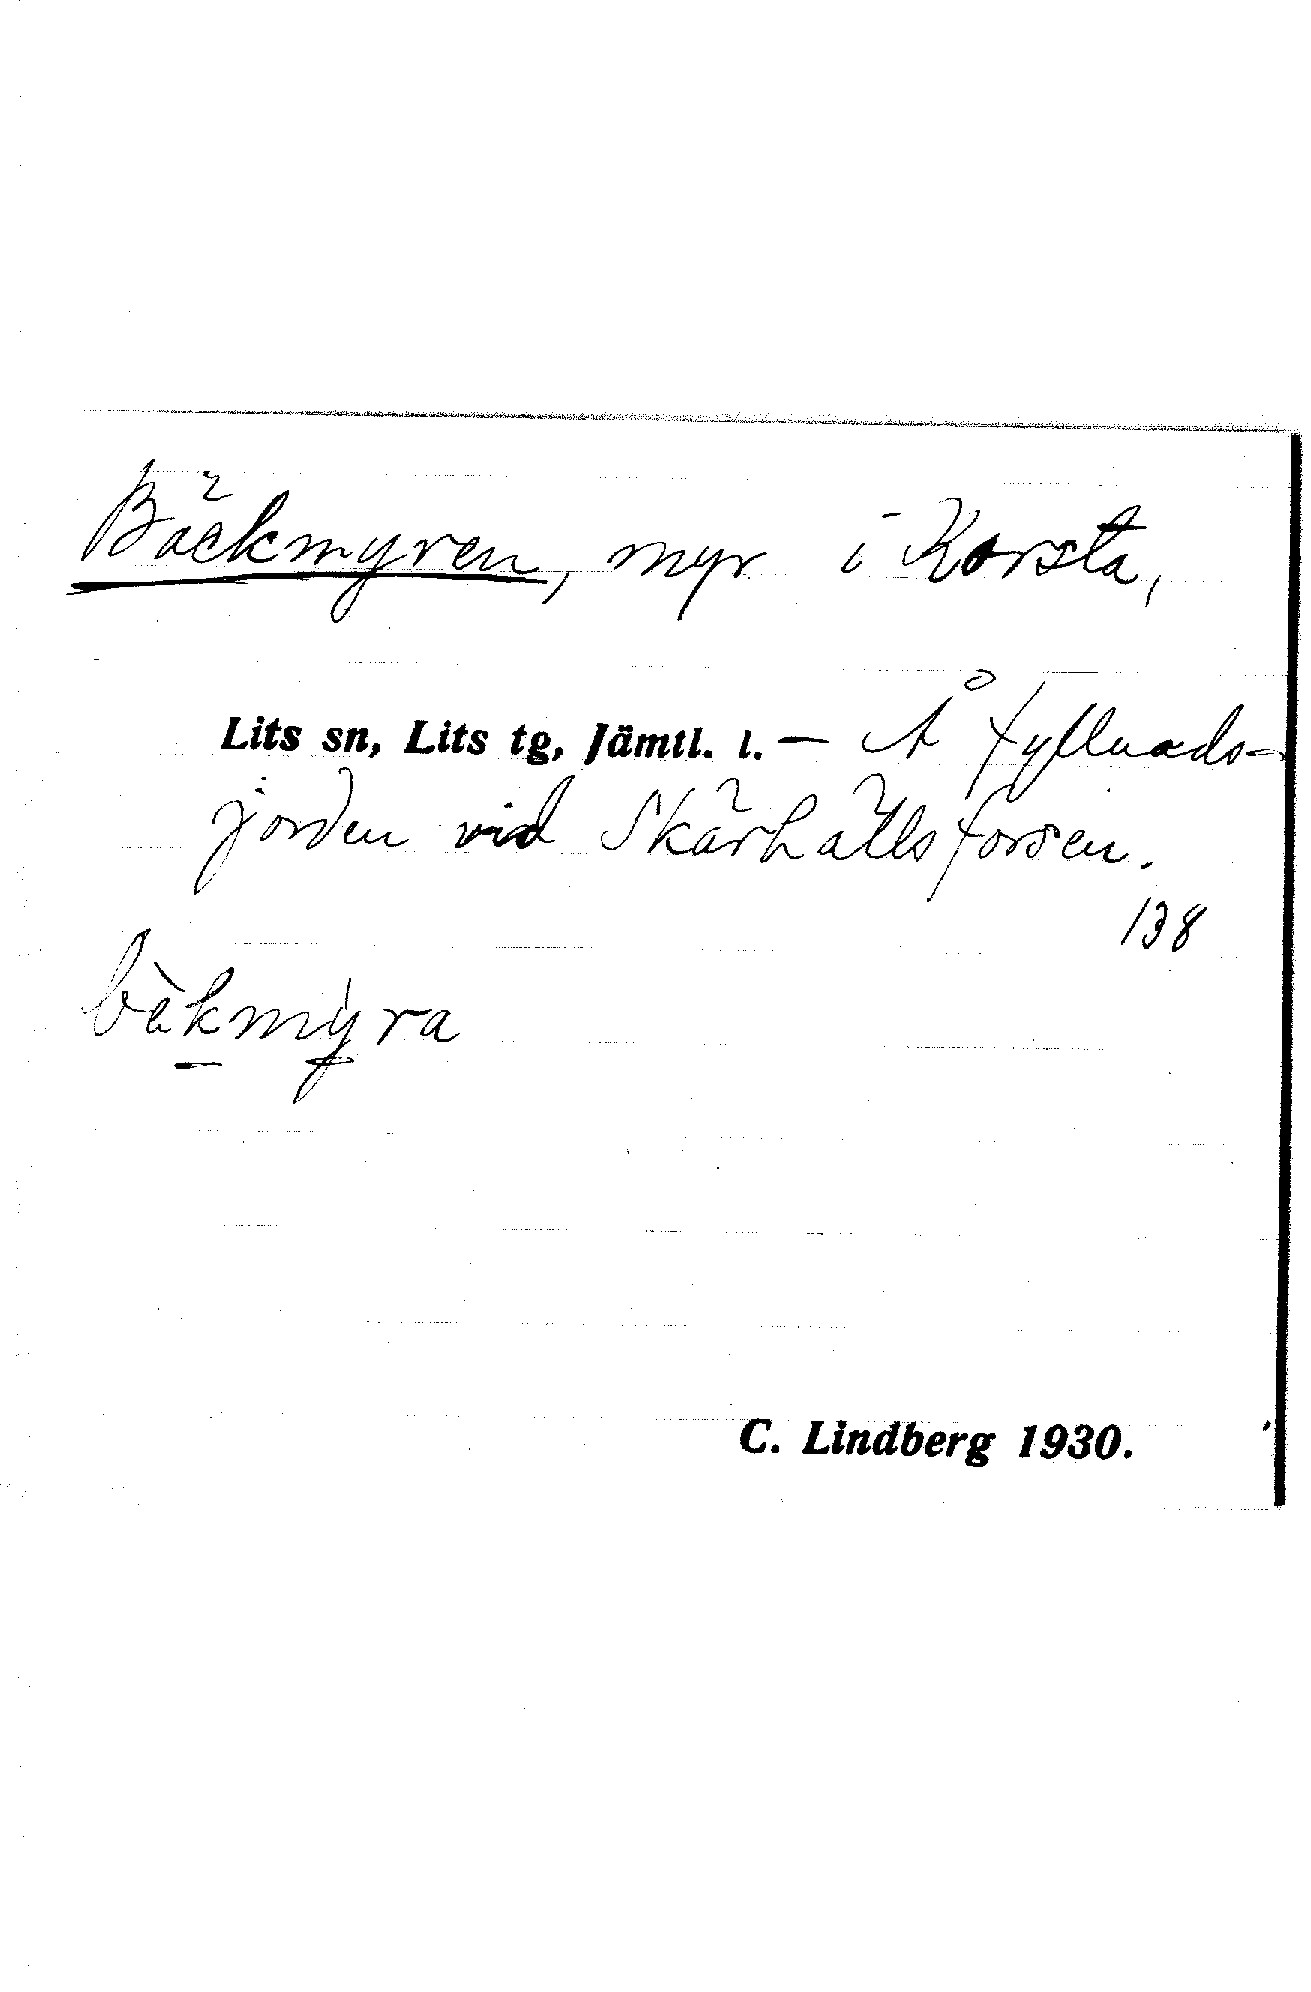 Bäckmyren, myr i Korsta,
Lits sn, Lits tg, Jämtl. l. — Å fyllnads-
jorden vid Skärhällsforsen.
138
bàkmyra
C. Lindberg 1930.